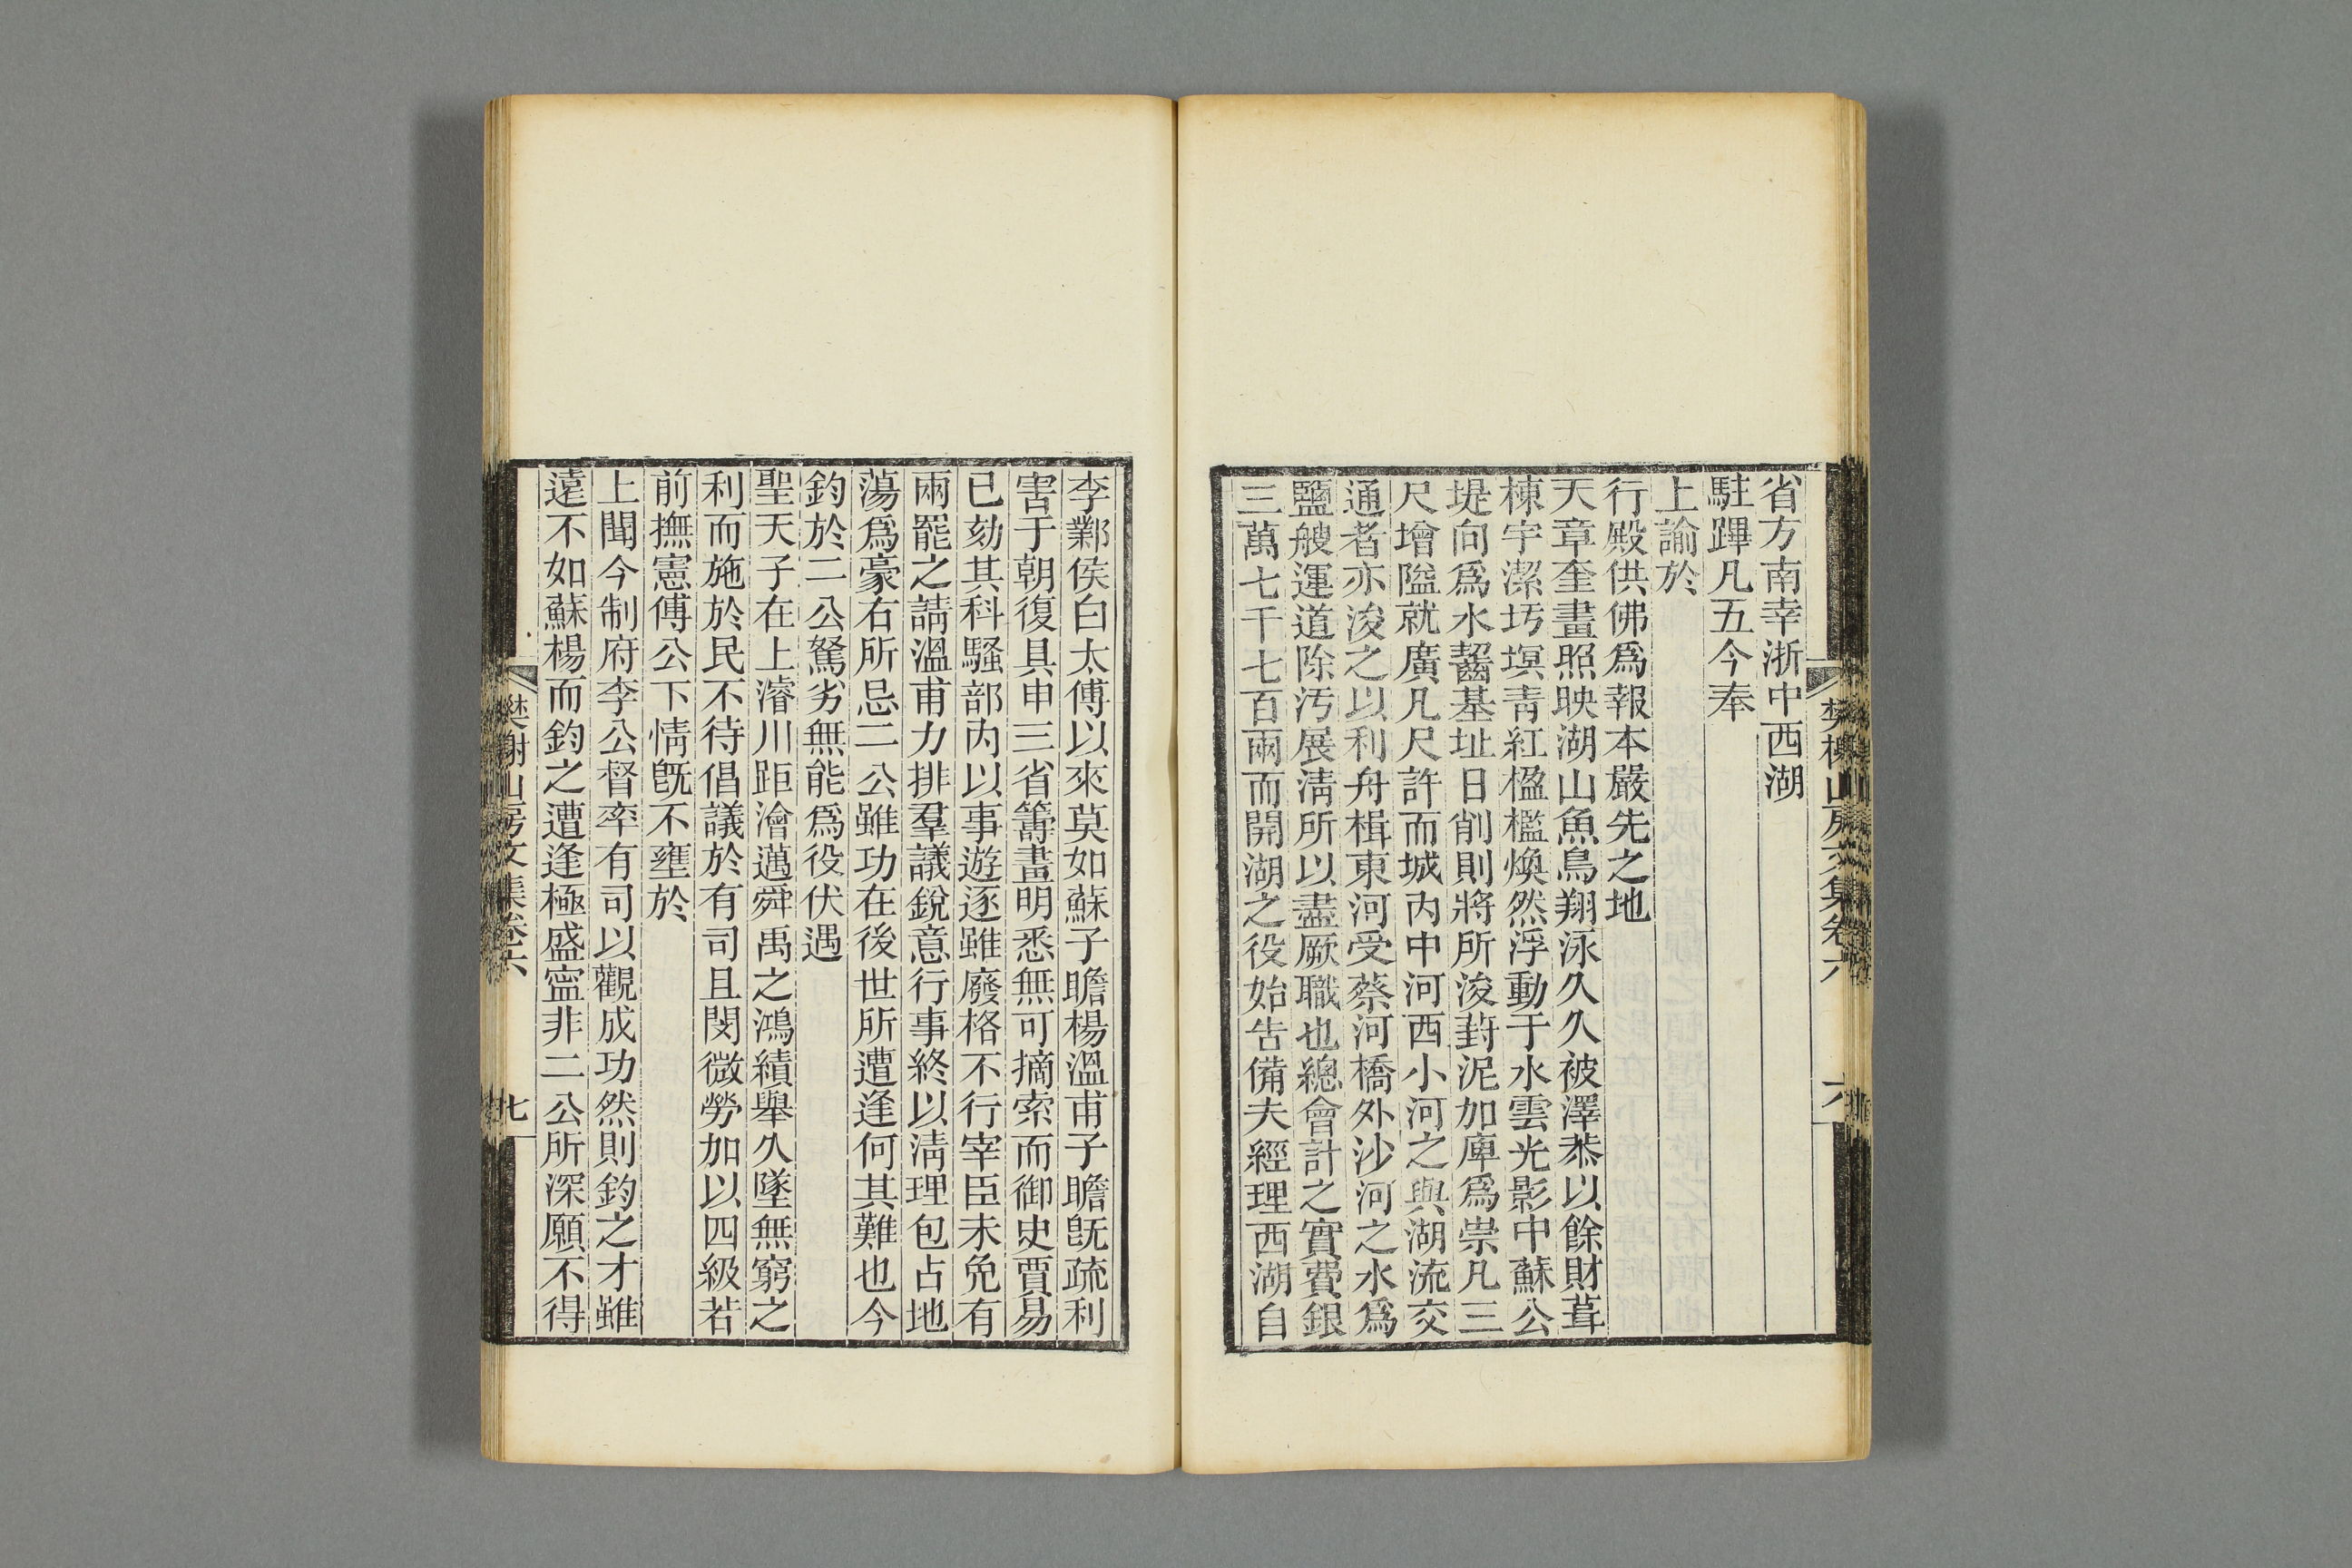 省方南幸浙中西湖
駐蹕凡五今奉
上諭於
行殿供佛爲報本嚴先之地
天章奎畫照映湖山魚鳥翔泳久久被澤恭以餘財葺
棟宇潔圬塓靑紅楹檻煥然浮動于水雲光影中蘇公
堤向爲水齧基址日削則將所浚葑泥加庳爲崇凡三
尺增隘就廣凡尺許而城內中河西小河之與湖流交
通者亦浚之以利舟楫東河受蔡河橋外沙河之水爲
鹽艘運道除汚展淸所以盡厥職也總會計之實費銀
三萬七千七百兩而開湖之役始告備夫經理西湖自
樊榭山房文集卷六
六
李鄴侯白太傅以來莫如蘇子瞻楊溫甫子瞻旣疏利
害于朝復具申三省籌畫明悉無可摘索而御史賈易
已劾其科騷部內以事遊逐雖廢格不行宰臣未免有
兩罷之請溫甫力排羣議銳意行事終以淸理包占地
蕩爲豪右所忌二公雖功在後世所遭逢何其難也今
鈞於二公駑劣無能爲役伏遇
聖天子在上濬川距澮邁舜禹之鴻績舉久墜無窮之
利而施於民不待倡議於有司且閔微勞加以四級若
前撫憲傅公下情旣不壅於
上聞今制府李公督率有司以觀成功然則鈞之才雖
遠不如蘇楊而鈞之遭逢極盛寍非二公所深願不得
樊榭山房文集卷六
七